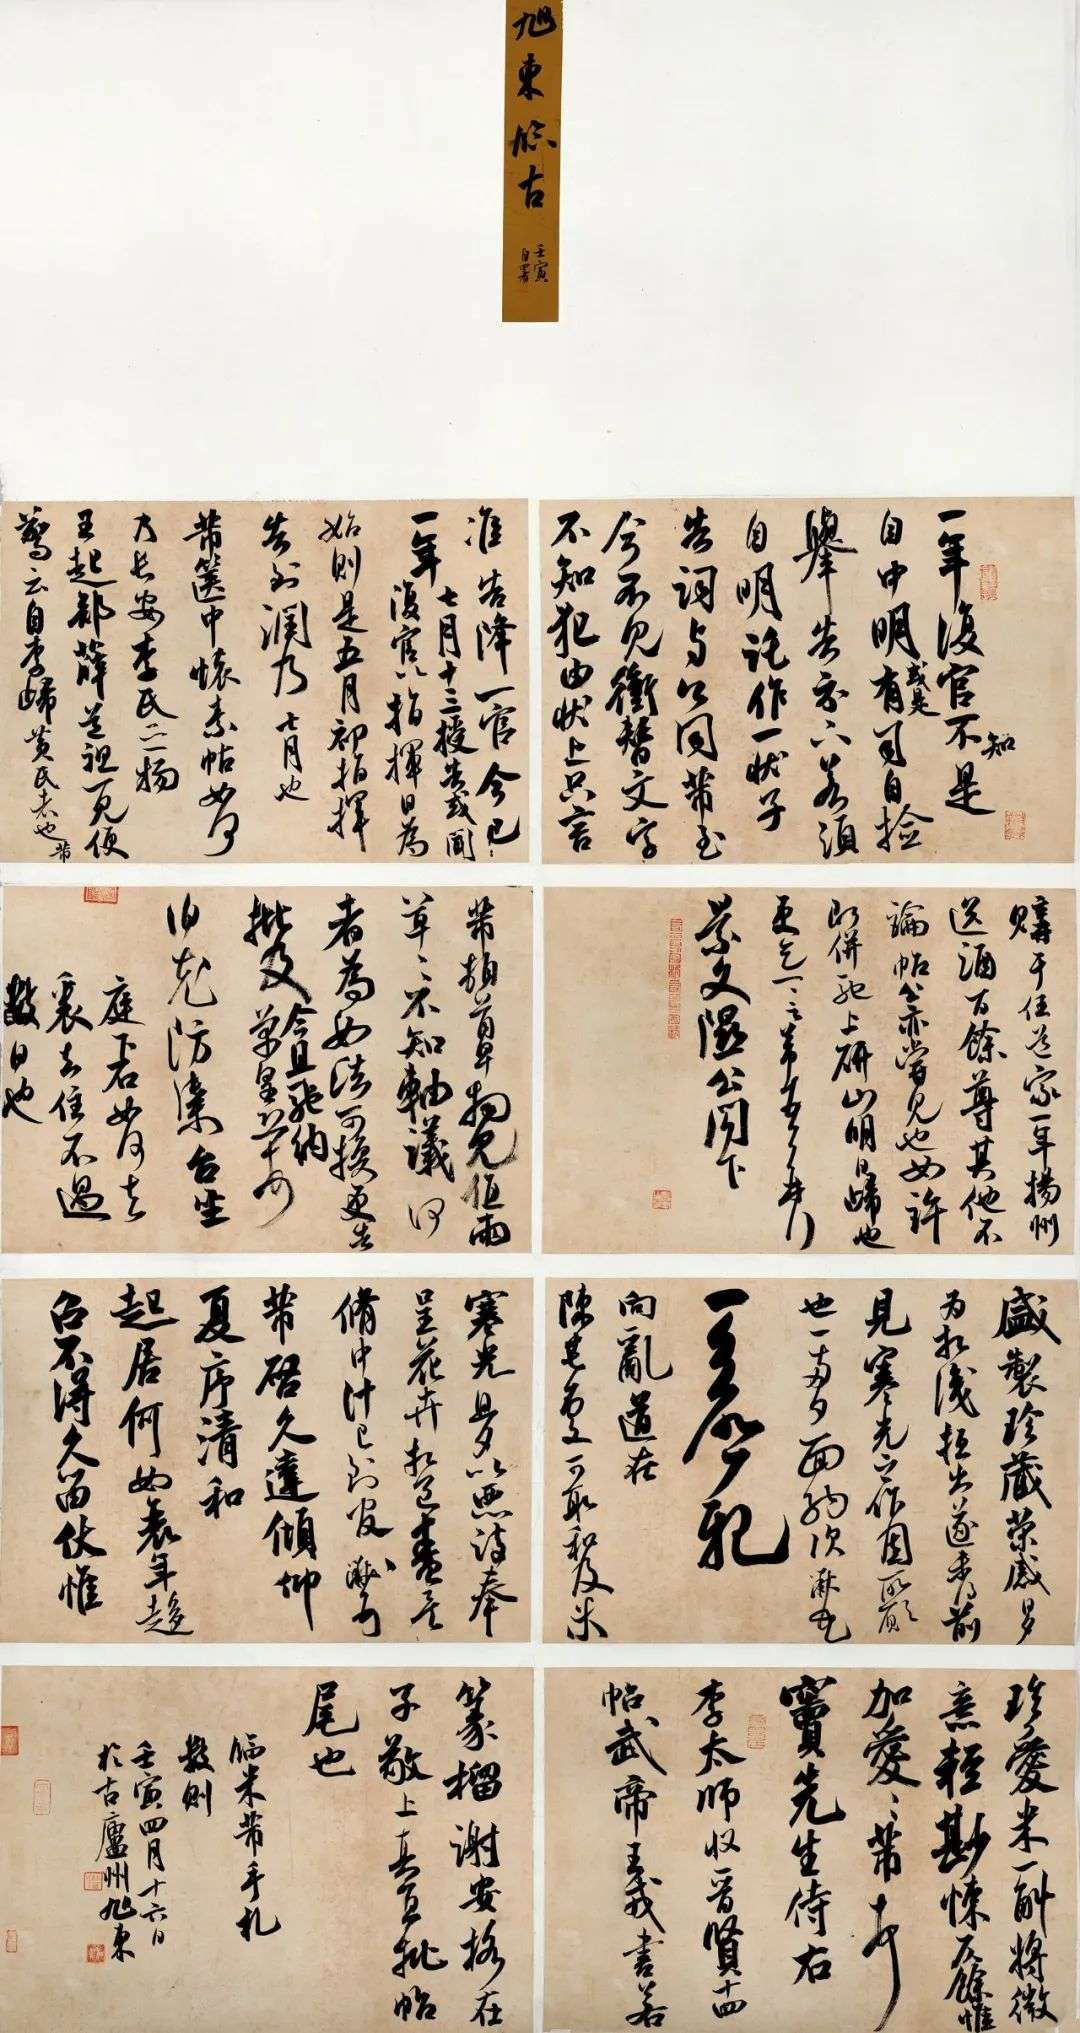 旭東臨古
壬寅
自署
一年復官不是
知
自中明有司自檢
或是
舉告示下若須
自明託作一狀子
告詞与公同芾至
今不見衝替文字
不知犯由狀上只言
准告降一官今已
一年七月十三授告或聞
復官以指揮日為
始則是五月初指揮
告到潤乃七月也
芾篋中懷素帖如何
乃長安李氏之物
王起部薛道祖一見便
驚云自李歸黃氏者也芾
購于任道家一年揚州
送酒百餘尊其他不
論帖公亦嘗見也如許
即併馳上研山明日歸也
更乞一言芾再拜
景文隰公閣下
芾頓首早拙兒值雨
草草不知軸議何
者為如法可換更告
批及今且馳納
伯充防禦台坐
庭下石如何去
裏去住不過
數日也
盛製珍藏榮感
為相淺拒出遂未得前
見寒光之作固所願
也一兩日面納次黻
向亂道在
陳安處可取和及米
寒光旦夕以惡詩奉
呈花卉想已盡矣
脩中計已到官黻
芾啓久違傾仰
夏序清和
起居何如衰年趍
召不得久留伏惟
珍愛米一斛將微
意輕尠悚仄餘惟
加愛加愛芾頓首
竇先生侍右
李太師收晉賢十四
帖武帝王戎書若
篆榴謝安格在
子敬上真宜批帖
尾也
臨米芾手札
數則
壬寅四月十六日
於古廬州旭東